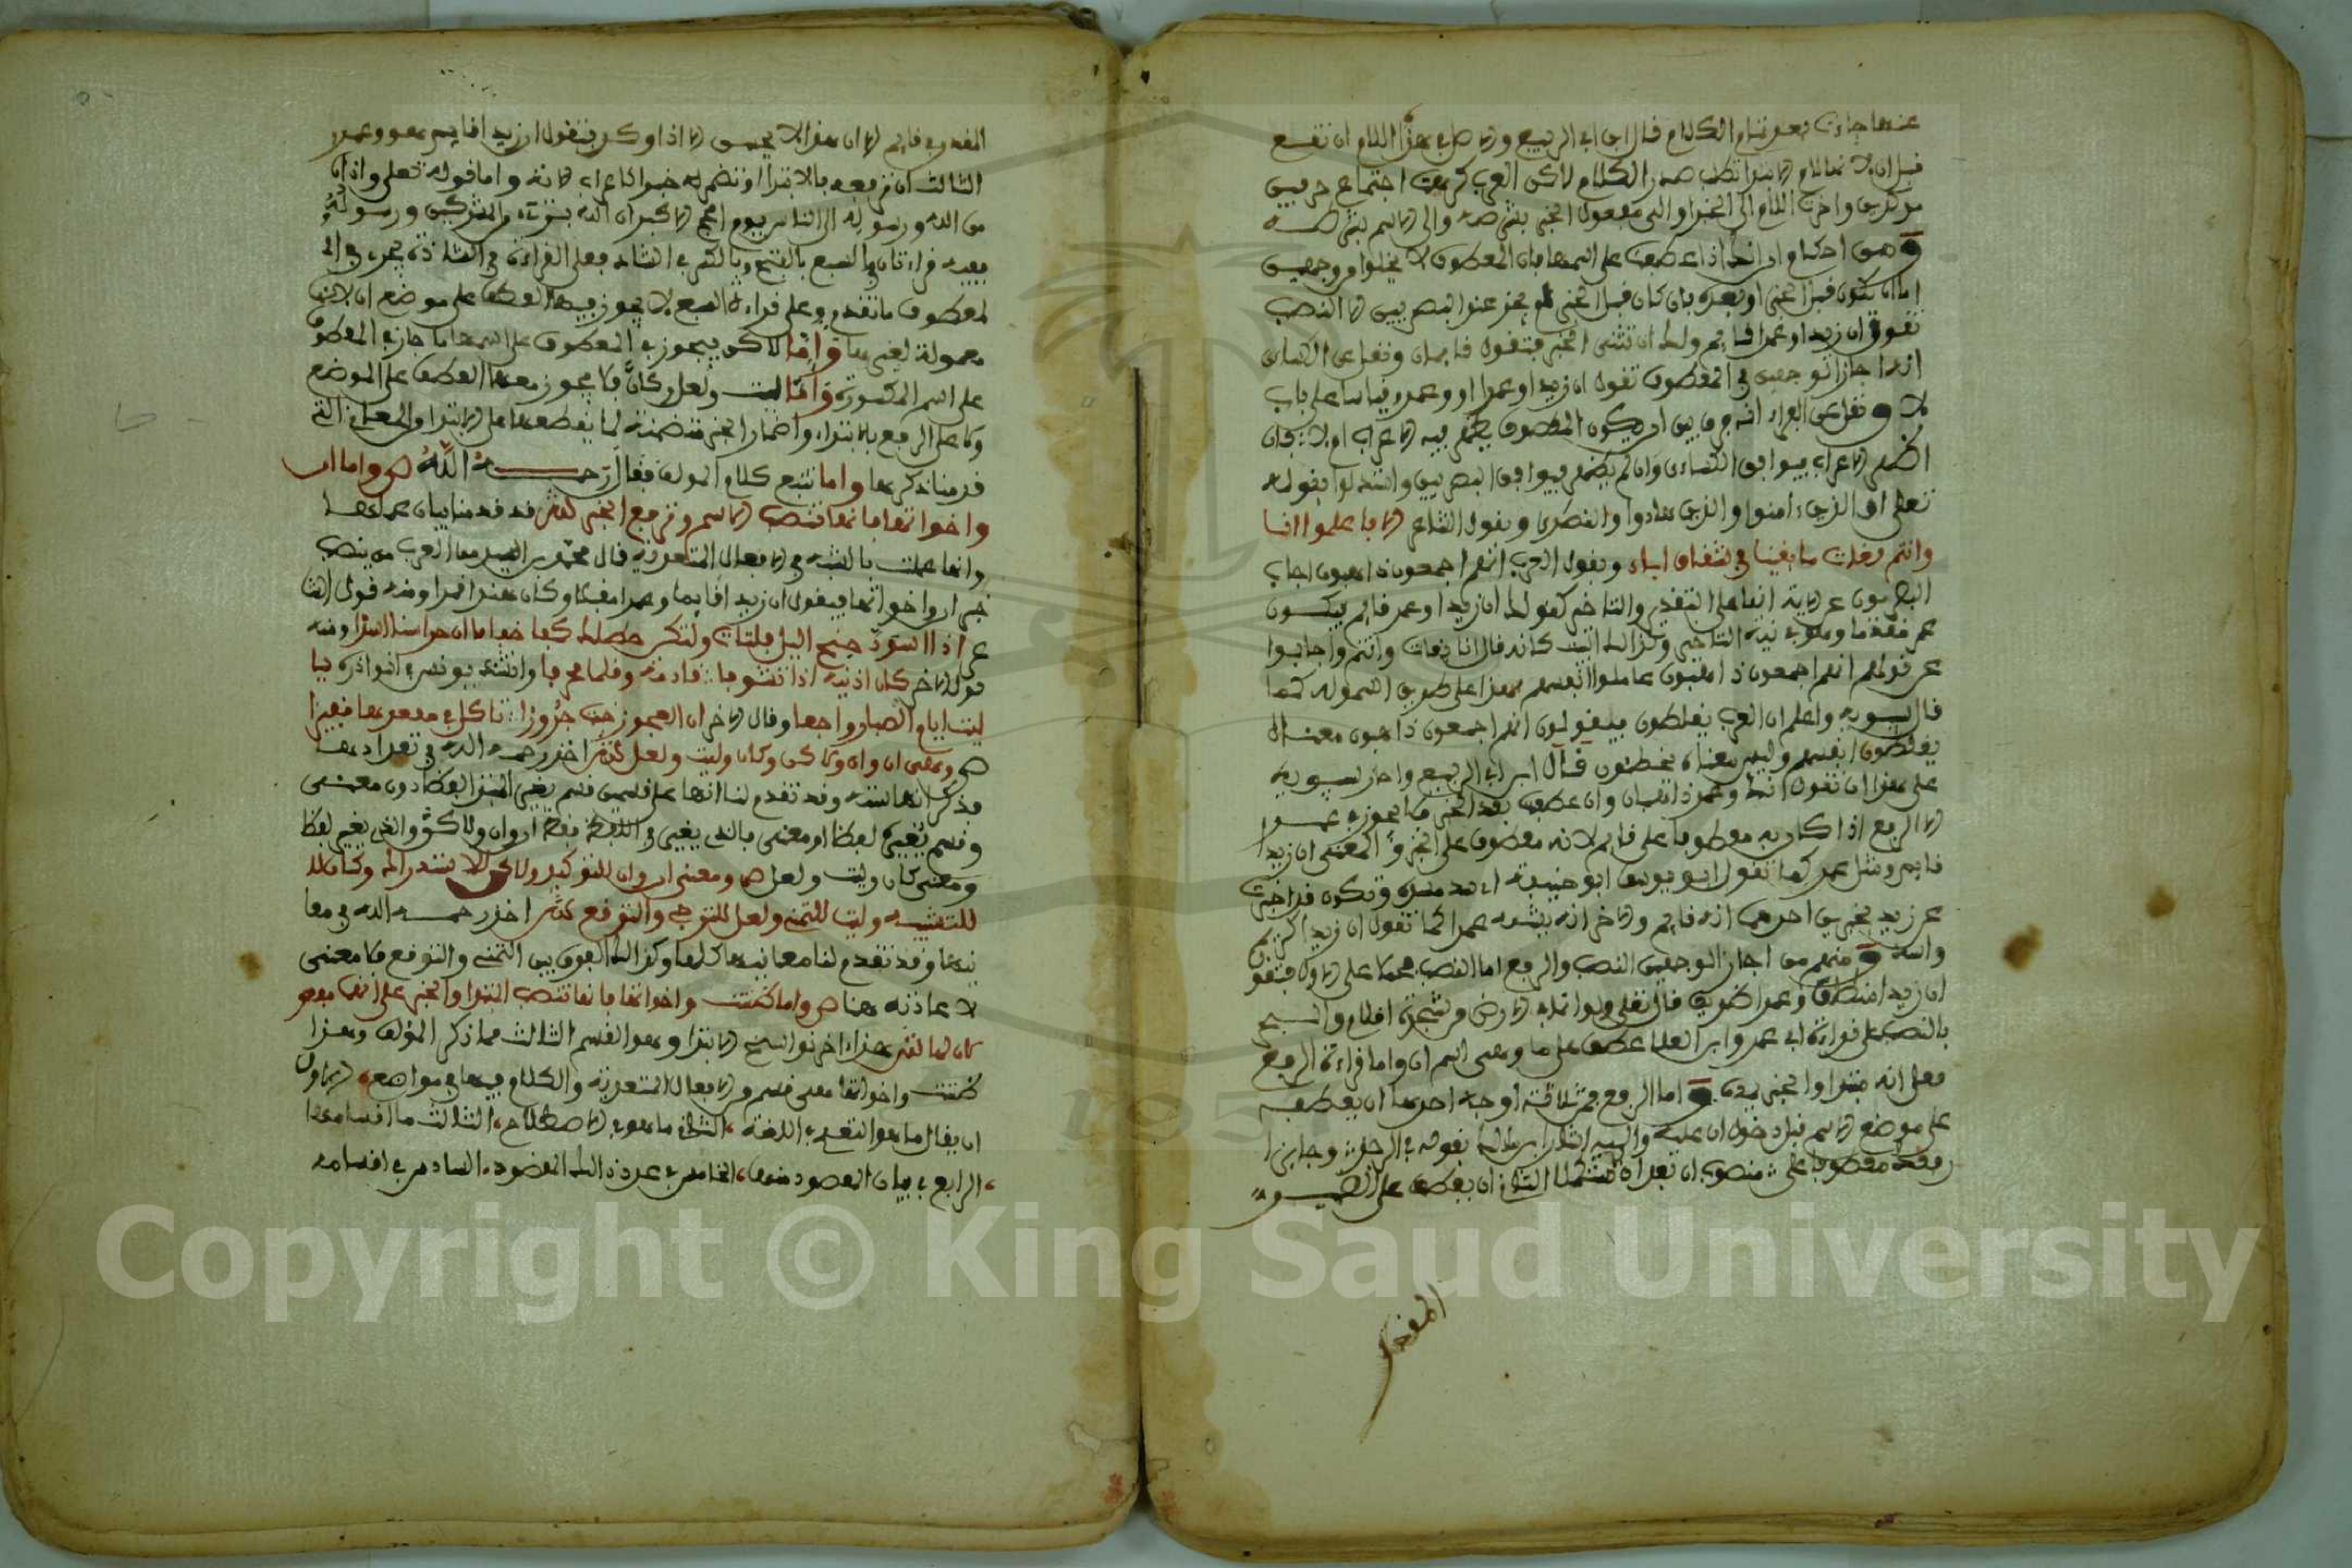 عنها جازت بعد تمام الكلام قال ابن ابي الربيع والاصل في هذا اللام ان تقع
قبل ان لانها لام الابتدا تطلب صدر الكلام لاكن العرب كرهت اجتماع حرفين
موكدين واخرت اللام الى الخبر او الى معمول الخبر بشرطه والى الاسم بشرطه
ومن احكام ان انك اذا عطفت على اسمها فان المعطوف لا يخلوا من وجهين
اما ان يكون قبل الخبر او بعده فان كان قبل الخبر فلم يجز عند البصريين الا النصب
تقول ان زيدا وعمرا قايم ولك ان تثنى الخبر فتقول قايمان ونقل عن الكساءى
انه اجاز الوجهين في المعطوف تقول ان زيدا وعمرا او وعمرو قياسا على باب
لا ونقل عن الفراء انه فرق بين ان يكون المعطوف يظهر فيه الاعراب ام لا فان
ظهر الاعراب فيوافق الكساءى وان لم يظهر فيوافق البصريين واستدلوا بقوله
تعلى ان الذين ءامنوا والذين هادوا والنصرى وبقول الشاعر الا فاعلموا انا
وانتم بغاة ما بقينا في شقاق ابياه وبقول العرب انهم اجمعون ذاهبون اجاب
البصريون عن الاية انها على التقديم والتاخير كقولك ان زيدا وعمر قايم فيكون
عمر مقدما وهو في نية التاخير وكذالك البيت كانه قال انا بغاة وانتم واجابوا
عن قولهم انهم اجمعون ذاهبون عاملوا انفسهم هذا على طريق السهو له كما
قال سيبويه واعلم ان العرب يغلطون فيقولون انهم اجمعون ذاهبون معناه
يغلطون انفسهم وليس معناه يخطئون قال ابن ابي الربيع واجاز سيبويه
على هذا ان تقول انك وعمر ذاهبان وان عطفت بعد الخبر فلا يجوز في عمر
الا الرفع اذا كان به معطوفا على قايم لانه معطوف على الخبر والمعنى ان زيدا
قايم ومثل عمر كما تقول ابو يوسف ابو حنيفة اي سد مسده وتكون قد اخبرت
عن زيد بخبرين احدهما انه قايم والاخر انه يشبه عمرا كما تقول ان زيدا كريم
وابنه ومنهم من اجاز الوجهين النصب والرفع اما النصب فحملا على الاول فتقول
ان زيدا منطلق وعمرا ضويف قال تعلى ولو انما في الارض من شجرة اقلام والبحر
بالنصب على قراءة ابي عمرو ابن العلا عطف على ما وهى اسم ان واما قراءة الرفع
فعلى انه مبتدا والخبر يمده واما الرفع فمن ثلاثة اوجه احدها ان يعطف
على موضع الاسم قبل دخول ان عليه واليه اشار ابن مالك بقوله في الرجز وجايز
رفعك معطوفا على منصوب ان بعد ان تستكملا الثاني ان يعطف على الضمير
المقدر
المقدر في قايم الا ان هذا لا يحسن الا اذا وكد فتقول ان زيدا قايم هو وعمر
الثالث ان ترفعه بالابتدا وتضمر له خبرا لاعراب لانه واما قوله تعلى واذان
من الله ورسوله الى الناس يوم الحج الاكبر ان الله بريء من المشركين ورسوله
ففيه قراءتان في السبع بالفتح وبالكسر في الشاذ فعلى القراءة في الشاذة يجرى في ال
لمعطوف ما تقدم وعلى قراءة السبع لا يجوز فيها العطف على موضع ان لانها
معمولة لغيرها واما لاكن فيجوز في المعطوف على اسمها ما جاز في المعطوف
على اسم المكسورة واما ليت ولعل وكان فلا يجوز معها العطف على الموضع
ولا على الرفع بالابتداء واضمار الخبر متضمنة لما يقطعها على الابتدا والمعاني التي
قدمنا ذكرها واما نتبع كلام المولف فقال رحمه الله ص واما ان
واخواتها فانها تنصب الاسم وترفع الخبر ش قد قدمنا بيان عملها
وانما عملت بالشبه في الافعال المتعدية قال محمد بن السيد من العرب من ينصب
خبر ان واخواتها فيقول ان زيدا قايما وعمرا مقبلا وكان هندا قمرا ومنه قول الشا
عر اذا اسود جنح اليل فلتات ولتكن خطاك خفافا ان حراسنا اسدا ومنه
قول الاخر كان اذنيه اذا تشوفا قادمة وقلما محرفا وانشد يونس في النوادر يا
ليت ايام الصبا رواجعا وقال الاخر ان العجوز خبة جروزا تاكل في مقعدها قفيزا
ص وهى ان وان ولاكن وكان وليت ولعل ش اخذ رحمه الله في تعدادها
فذكر انها ستة وقد تقدم لنا انها على قسمين قسم يغير اللفظ دون معنى
وقسم يغير لفظا ومعنى فالذى يغير اللفظ فقط ان وان ولاكن والذى يغير لفظا
ومعنى كان وليت ولعل ص ومعنى ان وان للتوكيد ولاكن للاستدراك وكان
للتشبيه وليت للتمنى ولعل للترجى والتوقع ش اخذ رحمه الله في معا
نيها وقد تقدم لنا معانيها كلها وكذالك الفرق بين التمنى والتوقع فلا معنى
لاعادته هنا ص واما ظننت واخواتها فانها تنصب المبتدا والخبر على انهما مفعو
لان لها ش هذا اخر نواسخ الابتدا وهو القسم الثالث مما ذكر المؤلف وهذا
ظننت واخواتها معنى قسم من الافعال المتعدية والكلام فيها في مواضع الاول
ان يقال ما هو التعدى في اللغة الثانى ما هو في الاصطلاح الثالث ما اقسامه
الرابع في بيان المقصود منها الخامس في عدد ذالك المقصود السادس في اقسامه
Copyright © King Saud University
1957